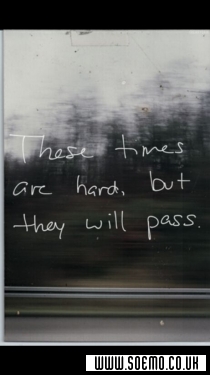 These times
are hard, but
they will pass.
WWW.SOEMO.CO.UK